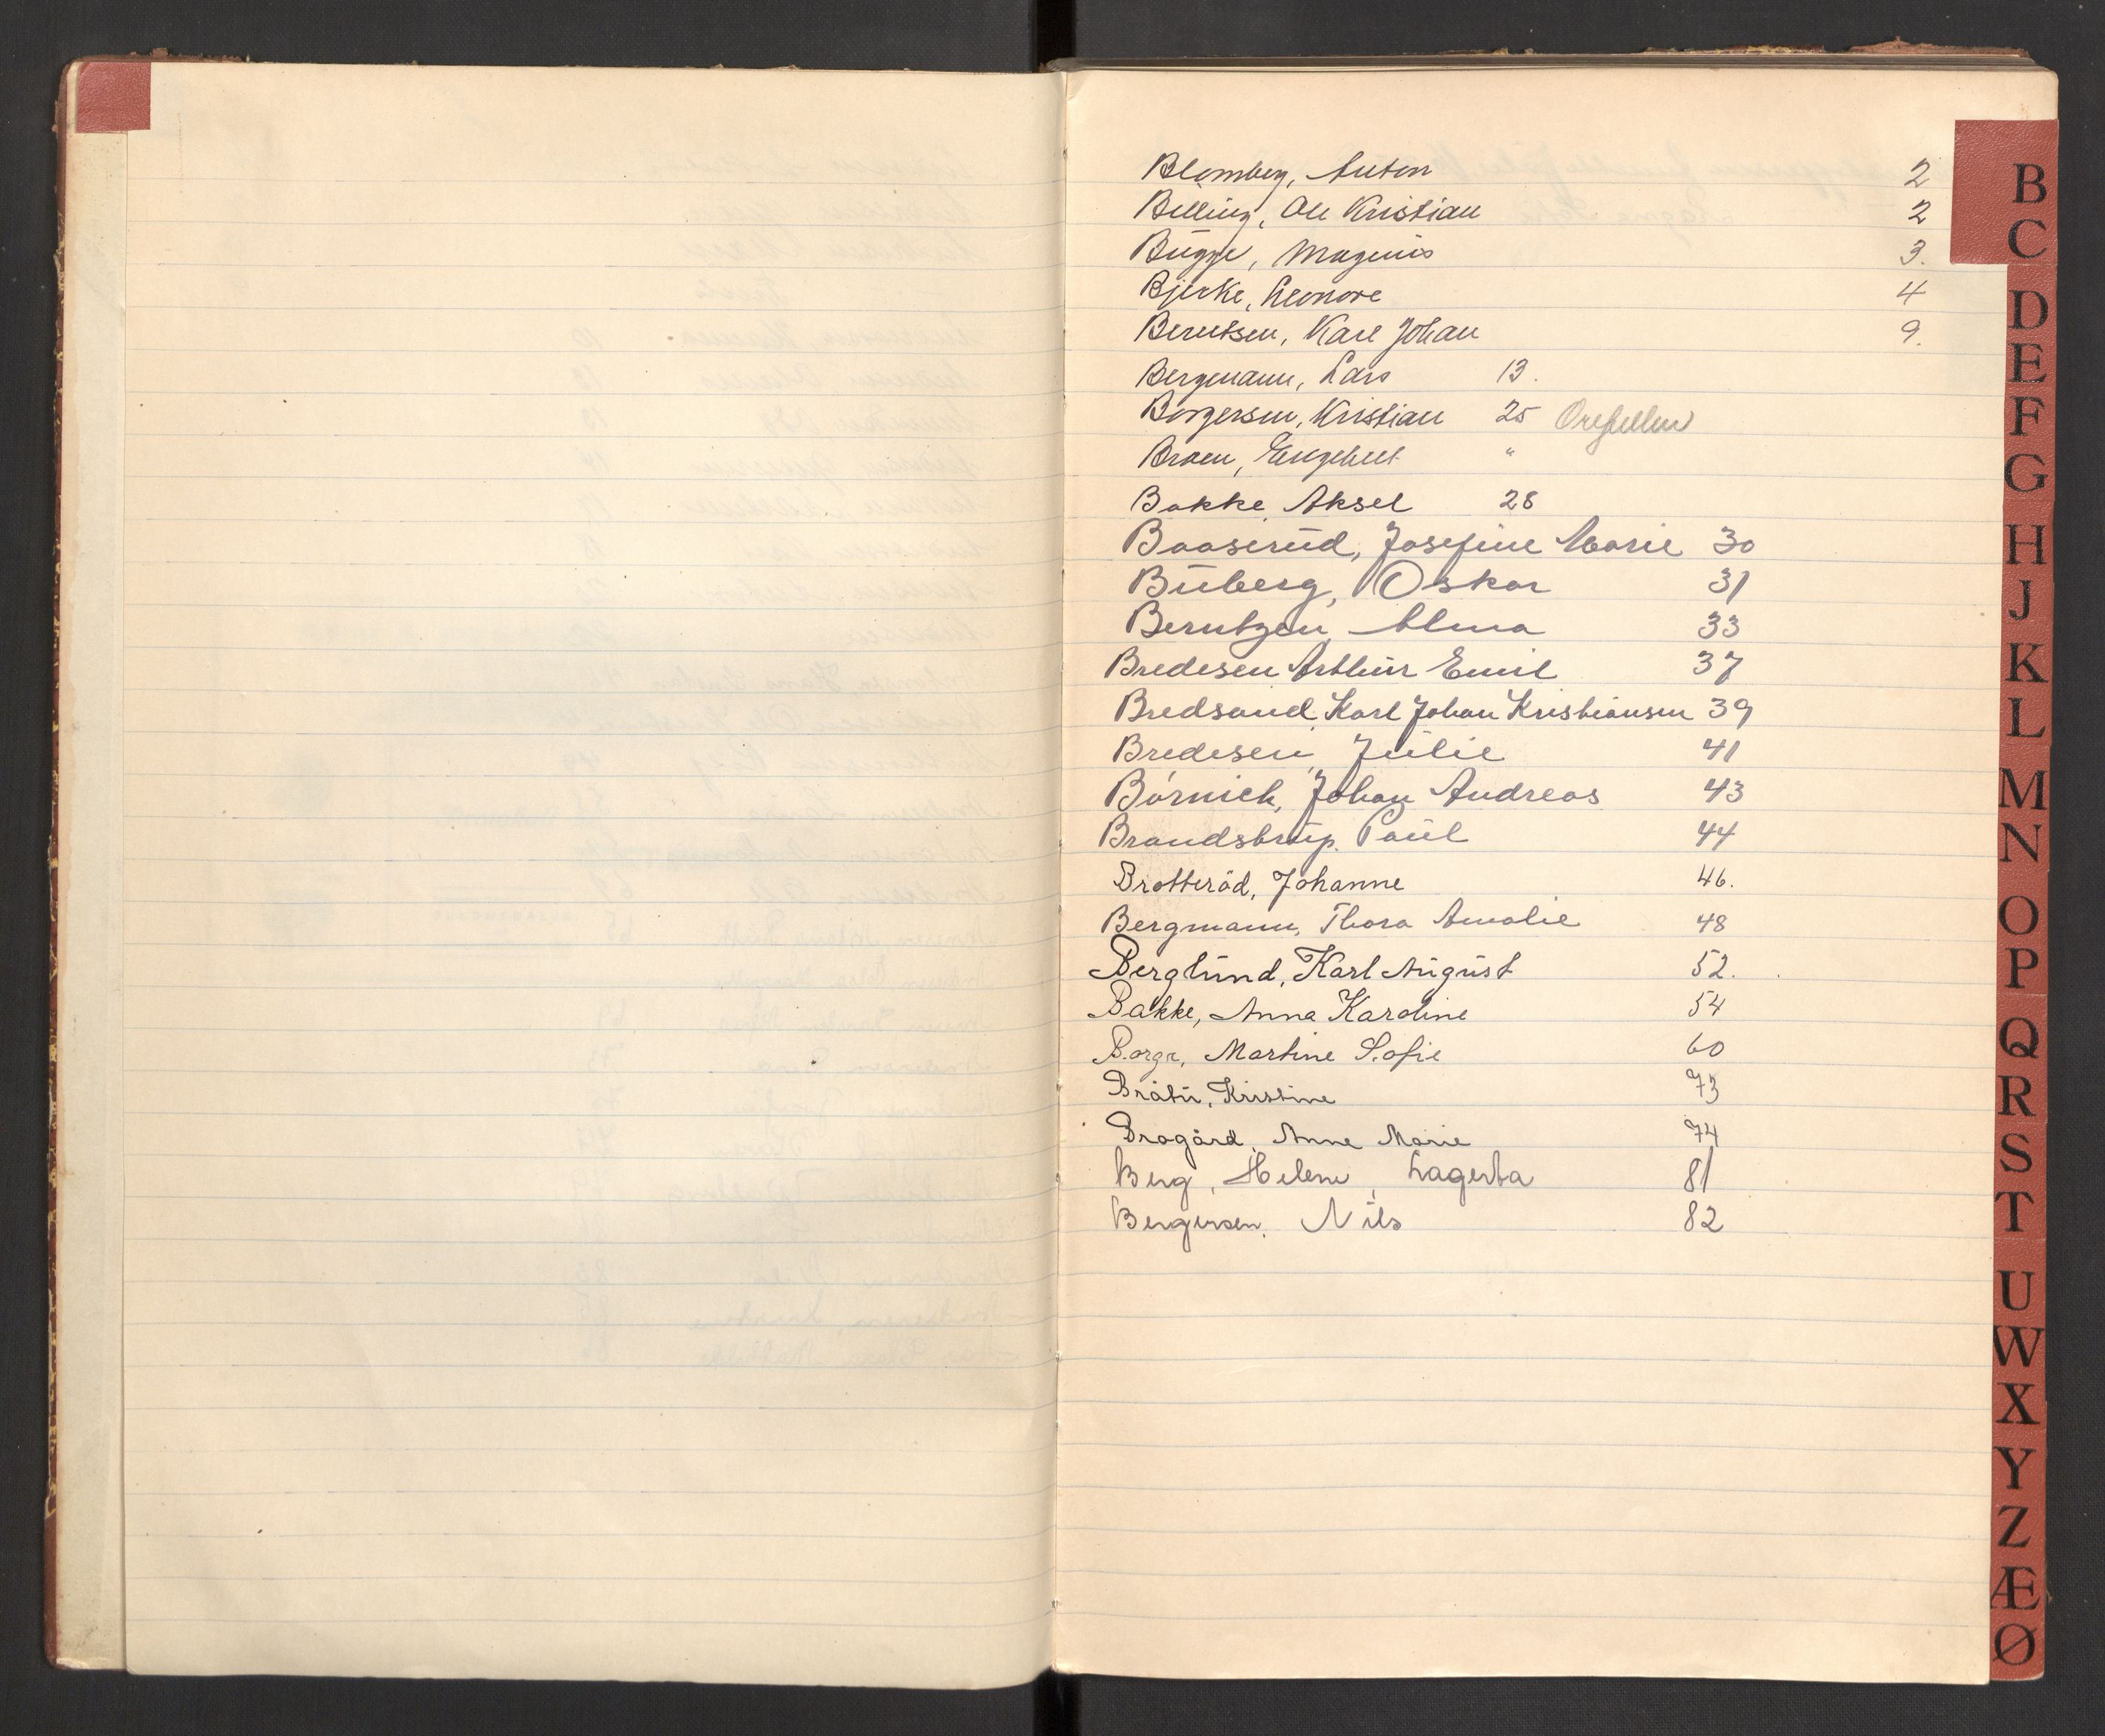 Blomberg, Anton 2
Billing, Ole Kristian 2
Bugge, Magnus 3.
Bjerke, Leonore 4
Berntsen, Karl Johan 9.
Bergmann, Lars 13.
Borgersen, Kristian 25
Braen, Engebret "
Bakke, Aksel 28
Baaserud, Josefine Marie 30
Buberg, Oskar 31
Berntzen, Alma 33
Bredesen Arthur Emil 37
Bredsand, Karl Johan Kristiansen 39
Bredesen, Julie 41
Börnich, Johan Andreas 43
Brandstrup, Paul 44
Brotteröd, Johanne 46.
Bergmann, Thora Amalie 48
Berglund, Karl August 52.
Bakke, Anna Karoline 54
Borge, Martine Sofie 60
Bråtu, Kristine 73
Bragård, Anne Marie 74
Berg, Helene, Lagerta 81
Bergersen, Nils 82
B
C
D
E
F
G
H
J
K
L
M
N
O
P
Q
R
S
T
U
W
X
Y
Z
Æ
Ø